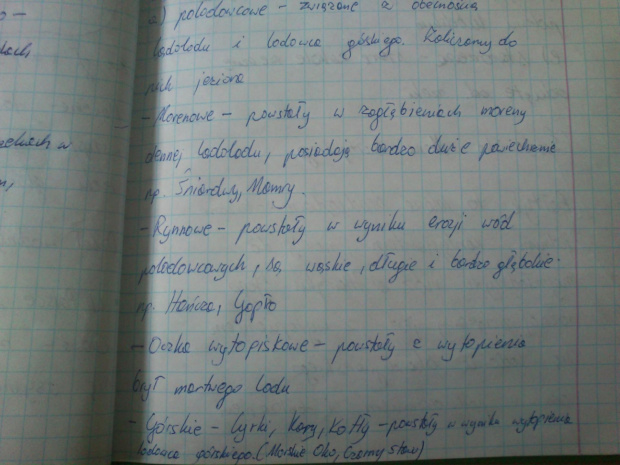 o –
a) polodowcowe – związane z obecnością
lądolodu i lodowca górskiego. Zaliczamy do
nich jeziora
– Morenowe – powstały w zagłębieniach moreny
dennej lądolodu, posiadają bardzo duże powierzchnie
np. Śniardwy, Mamry.
– Rynnowe – powstały w wyniku erozji wód
polodowcowych, są wąskie, długie i bardzo głębokie.
np. Hańcza, Gopło
– Oczka wytopiskowe – powstały z wytopienia
brył martwego lodu
– Górskie – Cyrki, Kary, Kotły – powstały w wyniku wytopienia
lodowca górskiego. (Morskie Oko, Czarny staw)